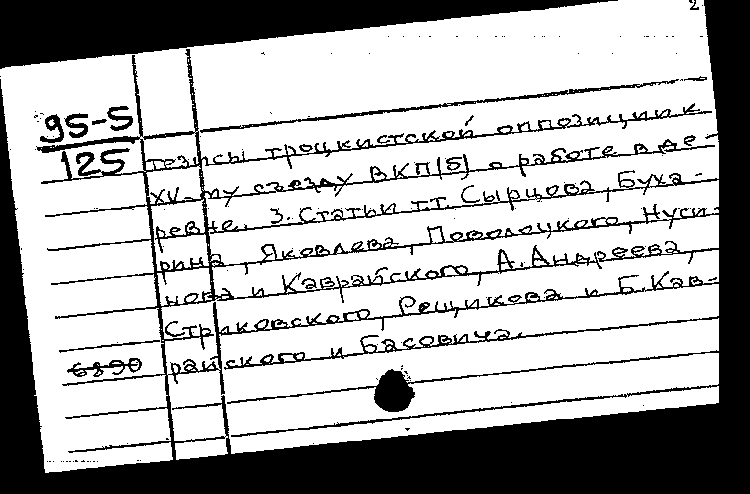 2
95-5
125
тезисы троцкистской оппозиции к
XV-му съезду ВКП(б) о работе в де-
ревне. 3. Статьи т.т. Сырцова, Буха-
рина, Яковлева, Поволоцкого, Нуси-
нова и Каврайского, А. Андреева,
Стриковского, Рещикова и Б. Кав-
райского и Басовича.
6890